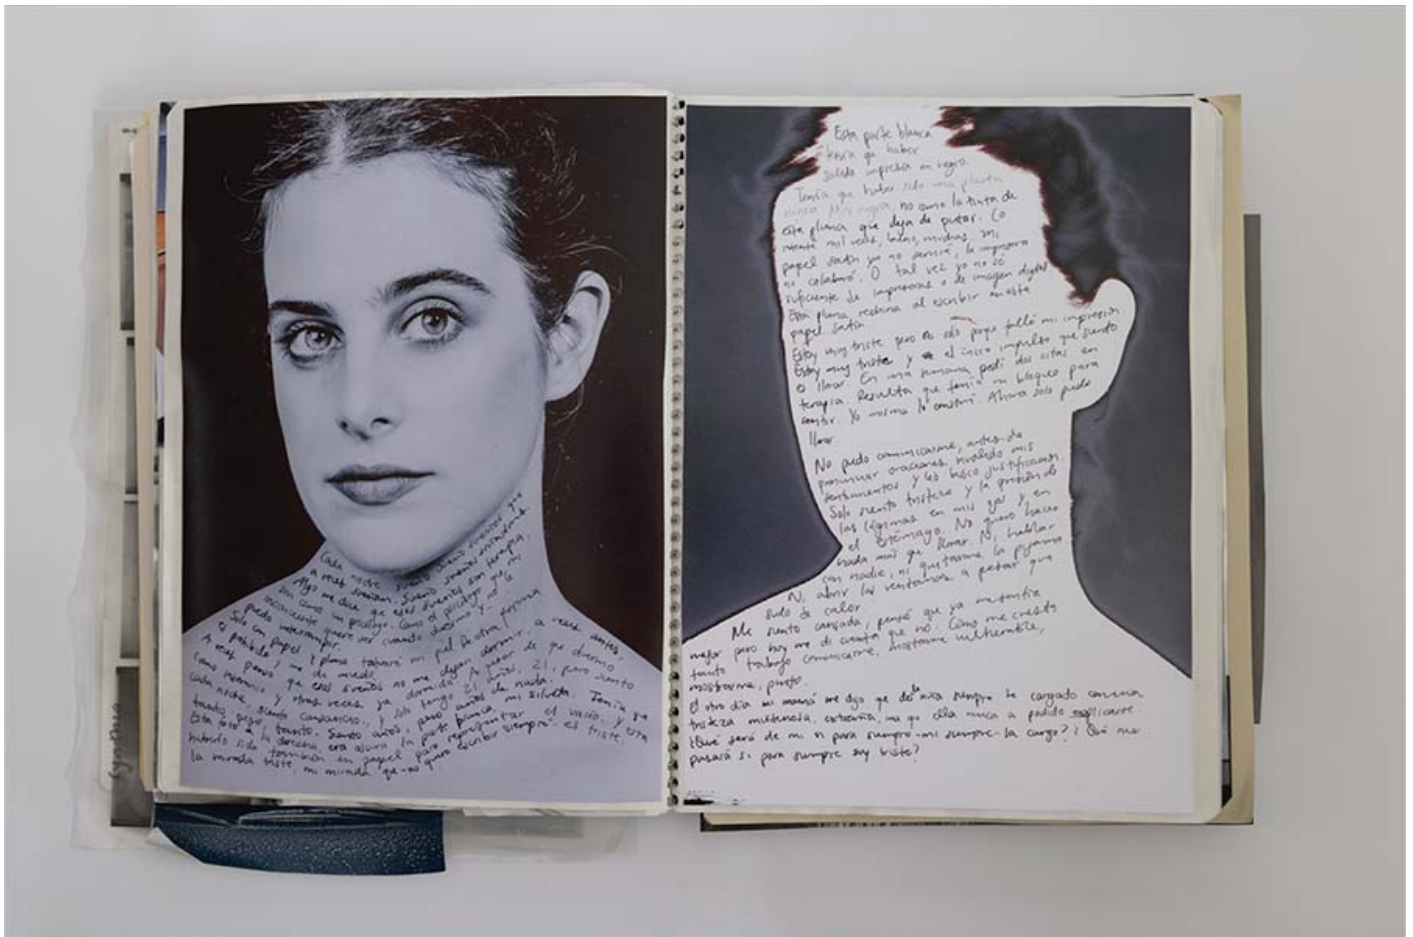 Cada noche sueño sueños que
a veces
Algo me dice que esos sueños son terapia,
son como un psicólogo. Como el psicólogo que mi
inconsciente quiere ser cuando duermo y no lo
puedo interrumpir.
Solo con papel y pluma tatuaré mi piel. De otra forma
el pedido me da miedo.
A veces pienso que esos sueños no me dejan dormir, a veces antes,
como insomnio y otras veces ya dormida. A pesar de que duermo
cada noche, siento cansancio, y solo tengo 21 años, 21, pero siento
tanto peso, tanto. Siento años, peso años de nada.
Esta foto a la derecha, era ahora la parte blanca, mi silueta. Tenía que
haber sido también en papel para representar el vacío, y esta
la mirada triste, mi mirada que -no quiero escribir siempre- es triste.
Esta parte blanca
tenía que haber
salido impresa en negro.
Tenía que haber sido una planta
nunca Muy negra, no como la tinta de
esta pluma que deja de pintar. Lo
intenté mil veces, bueno, muchas, mi
papel satín ya no servía, la impresora
no colaboró. O tal vez yo no sé
suficiente de impresoras o de imagen digital
Esta pluma rechina al escribir en este
papel satín
Estoy muy triste pero no solo porque falló mi impresión.
Estoy muy triste y el único impulso que siento
es llorar. En una semana pedí dos citas en
terapia. Resulta que tenía un bloqueo para
sentir. Yo misma lo construí. Ahora solo puedo
llorar.
No puedo comunicarme, antes de
pronunciar oraciones invalido mis
sentimientos y les busco justificación
Solo siento tristeza y la presión de
las lágrimas en mis ojos y en
el estómago. No quiero hacer
nada más que llorar Ni, hablar
con nadie, ni quitarme la pijama
Ni, abrir las ventanas a pesar que
sudo de calor
Me siento cansada, pensé que ya me sentía
mejor pero hoy me di cuenta que no. Cómo me cuesta
tanto trabajo comunicarme, mostrarme vulnerable,
mostrarme, punto.
El otro día mi mamá me dijo que desde niña siempre he cargado con una
tristeza misteriosa, extraña, una que ella nunca a podido explicarme.
¿Qué será de mi si para siempre -mi siempre- la cargo? ¿Qué me
pasará si para siempre soy triste?